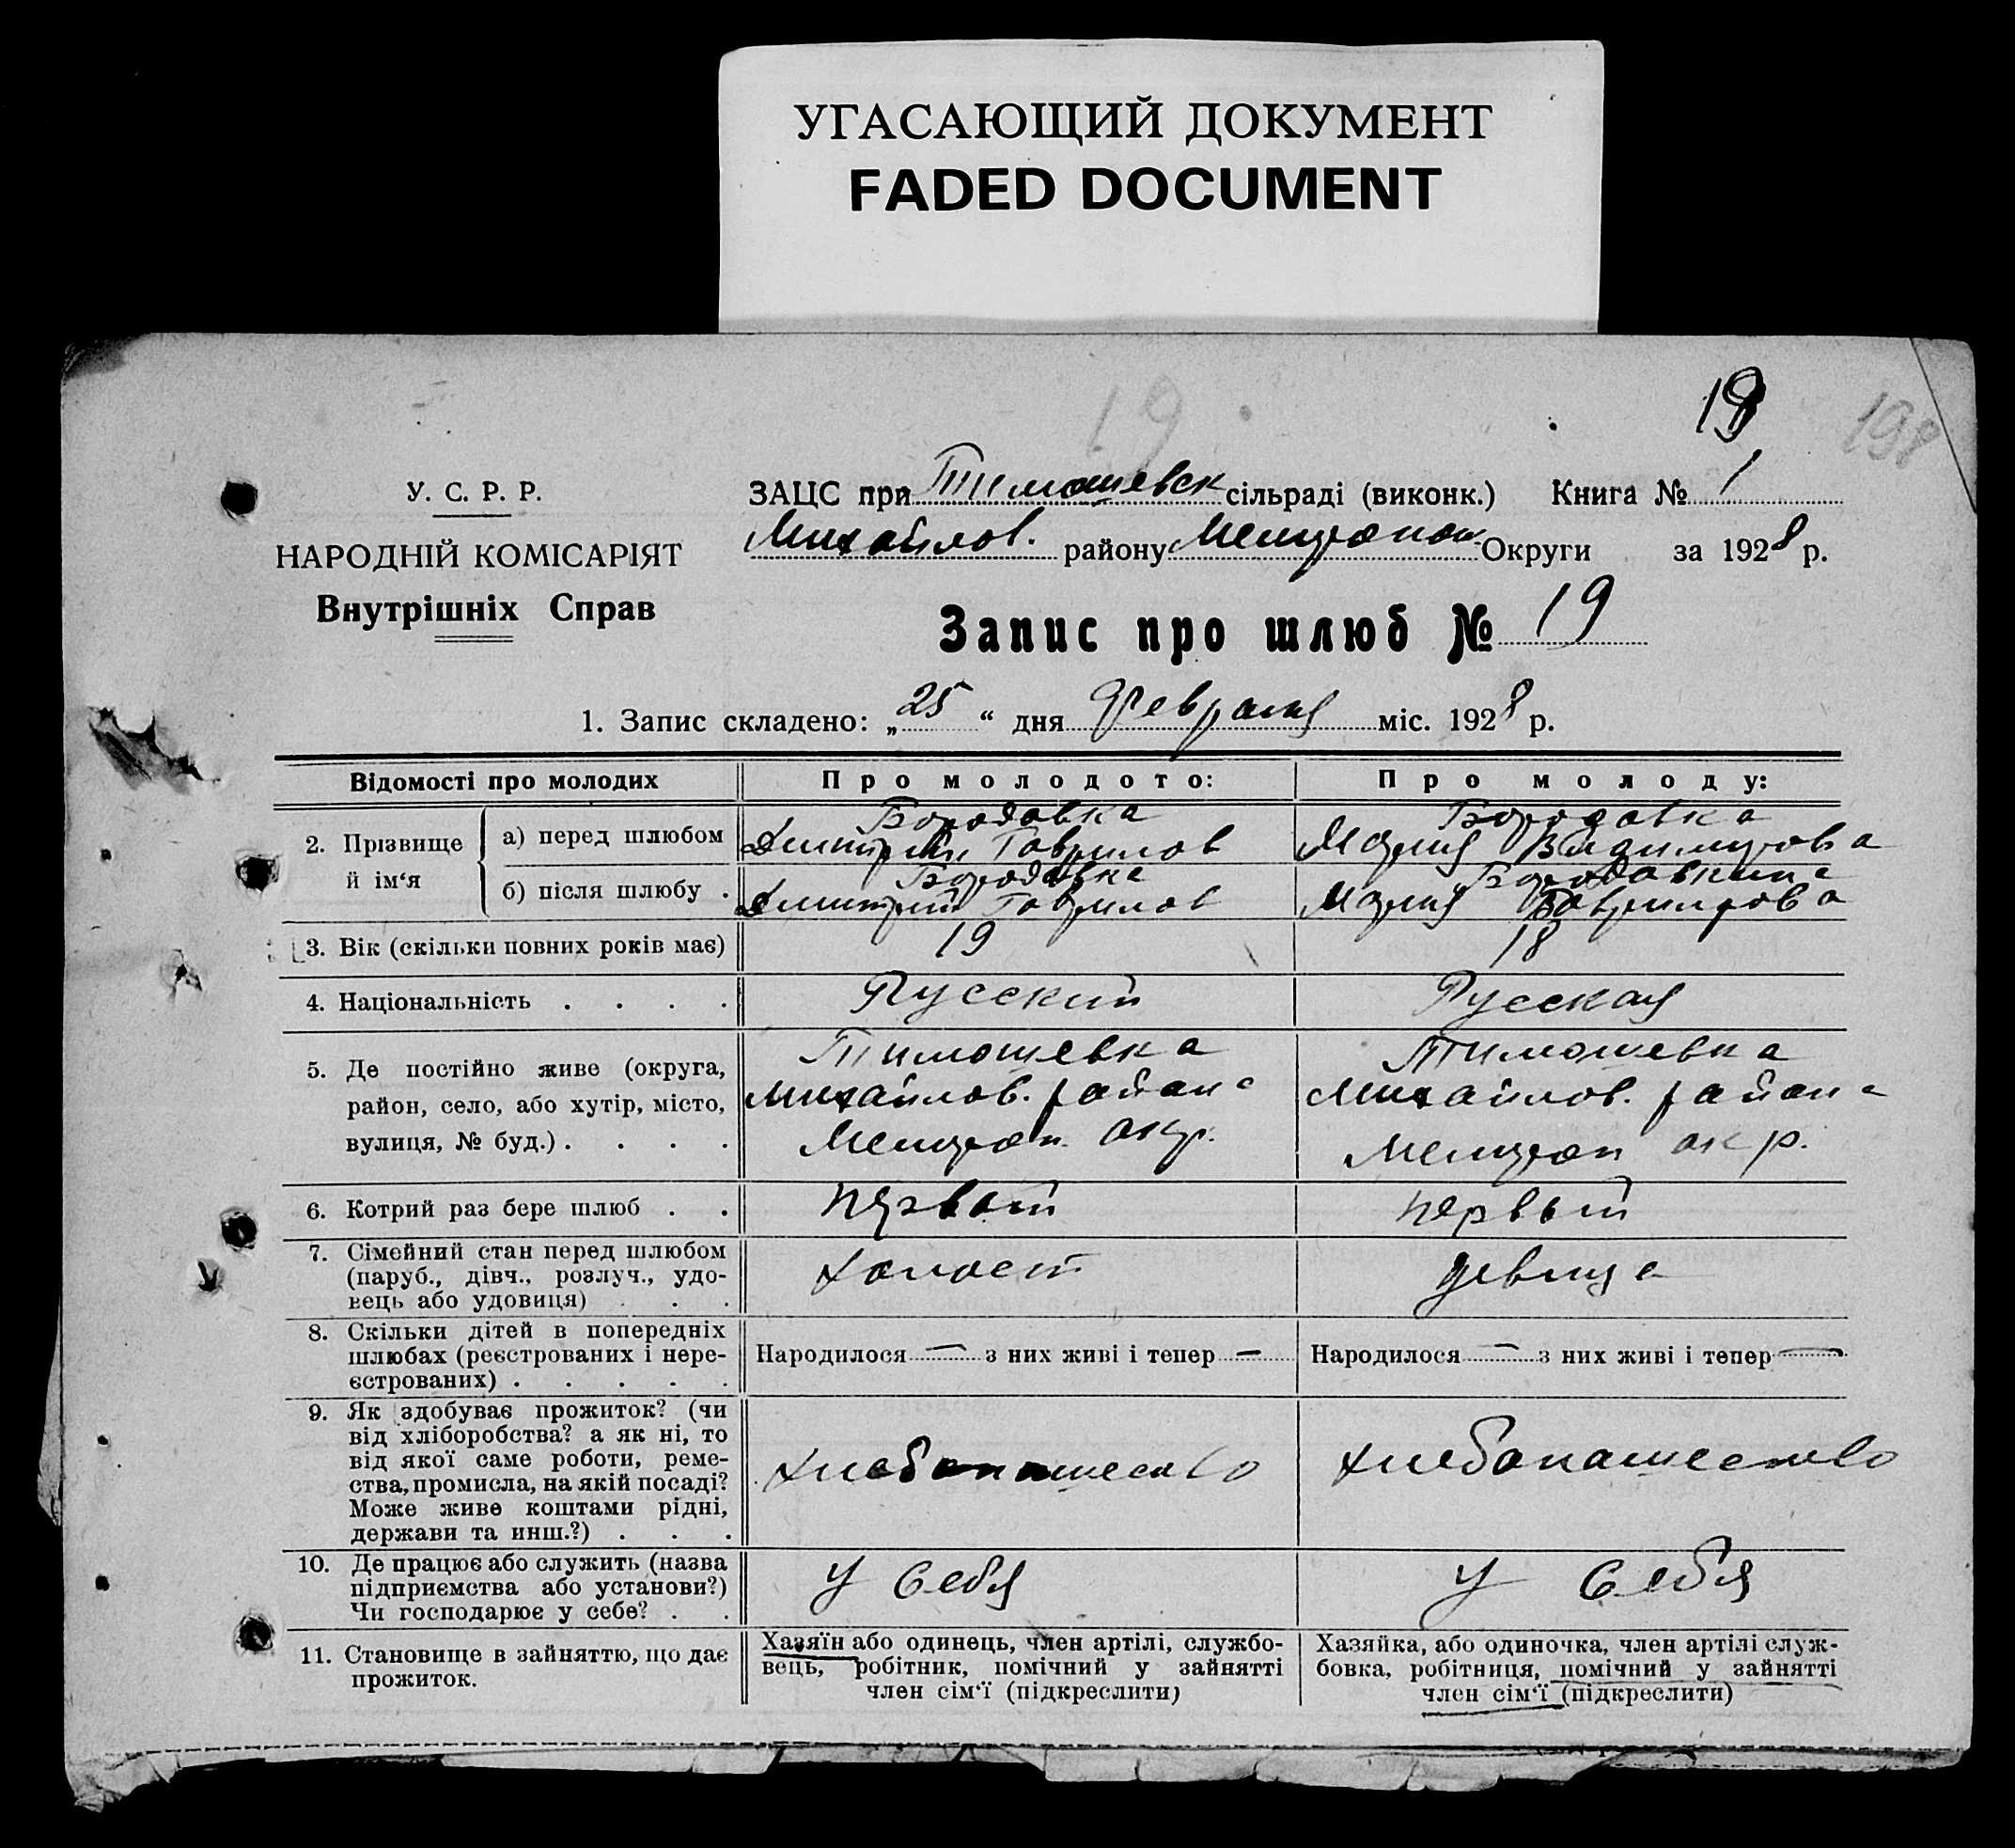 УГАСАЮЩИЙ ДОКУМЕНТ
FADED DOCUMENT
19
19
198
У. С. Р. Р.
НАРОДНІЙ КОМІСАРІЯТ
Внутрішніх Справ
ЗАЦС при Тимошевск сільраді (виконк.) Книга № 1
Михайлов. району Мелитопол Округи за 1928 р.
Запис про шлюб № 19
1. Запис складено: „25“ дня Февраля міс. 1928 р.
Відомості про молодих
Про молодого:
Про молоду:
2. Прізвище й ім‘я
а) перед шлюбом
Бородавка
Дмитрий Гаврилов
Бородавка
Мария Владимирова
б) після шлюбу .
Бородавка
Дмитрий Гаврилов
Бородавкина
Мария
3. Вік (скільки повних років має)
19
18
4. Національність . . . .
Русский
Русская
5. Де постійно живе (округа,
район, село, або хутір, місто,
вулиця, № буд.) . . . .
Тимошевка
Михайлов. района
Мелитоп. окр.
Тимошевка
Михайлов. района
Мелитоп окр.
6. Котрий раз бере шлюб . .
первый
первый
7. Сімейний стан перед шлюбом
(паруб., дівч., розлуч., удо-
вець або удовиця) . . .
холост
девица
8. Скільки дітей в попередніх
шлюбах (реєстрованих і нере-
єстрованих) . . . . .
Народилося — з них живі і тепер —
Народилося — з них живі і тепер —
9. Як здобуває прожиток? (чи
від хліборобства? а як ні, то
від якої саме роботи, реме-
ства, промисла, на якій посаді?
Може живе коштами рідні,
держави та инш.?) . . .
хлебопашество
хлебопашество
10. Де працює або служить (назва
підприємства або установи?)
Чи господарює у себе? . .
У себя
У себя
11. Становище в зайняттю, що дає
прожиток.
Хазяїн або одинець, член артілі, службо-
вець, робітник, помічний у зайнятті
член сім‘ї (підкреслити)
Хазяйка, або одиночка, член артілі служ-
бовка, робітниця, помічний у зайнятті
член сім‘ї (підкреслити)